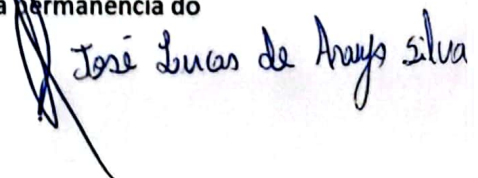 a permanência do
José Lucas de Araujo Silva